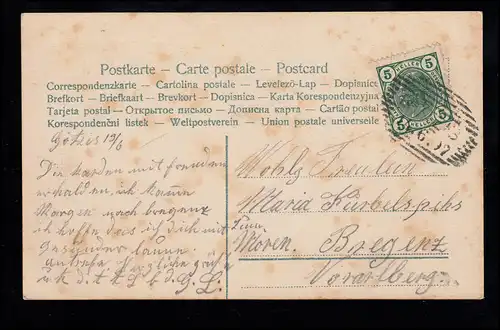 Postkarte – Carte postale – Postcard
Correspondenzkarte – Cartolina postale – Levelező-Lap – Dopisnice
Brefkort – Briefkaart – Brevkort – Dopisnica – Karta Korespondenzyjna
Tarjeta postal – Открытое письмо – Дописна карта – Cartão postal
Korespondenční listek – Weltpostverein – Union postale universelle
5 HELLER 5
5 HELLER 5
Götzis 19/6
Die Karden mit freuden
erhalden, ich kome
Morgen nach bregenz
ich hoffe das ich dich mit
Gesunder laune
antrefe Herzliche grüße
u k d t k b d. G. L.
Wohlg Freulein
Maria
Moren. Bregenz
Vorarlberg